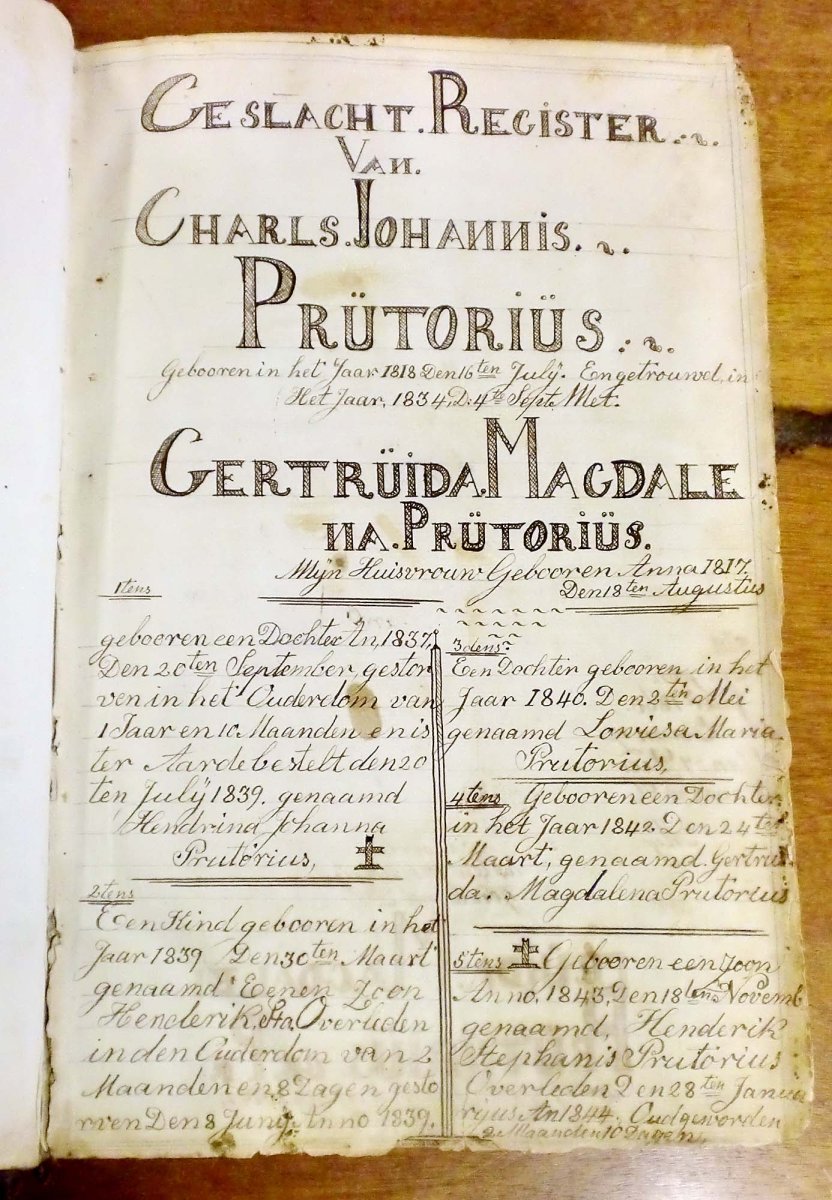 GESLACHT. REGISTER.
VAN.
CHARLS. JOHANNIS.
PRÜTORIÜS.
Gebooren in het Jaar 1818 Den 16ten July. En getrouwd, in
Het Jaar, 1834, D: 4te Septe Met.
GERTRÜIDA. MAGDALE
NA. PRÜTORIÜS.
Mÿn Huisvrouw Gebooren Anna 1817.
Den 18ten Augustus
1tens
gebooren een Dochter An, 1837,
Den 20ten September, gestor
ven in het Ouderdom van
1 Jaar en 10 Maanden en is
ter Aarde bestelt den 20
ten Julÿ 1839. genaamd
Hendrina Johanna
Prutorius,
2tens
Een Kind gebooren in het
Jaar 1839 Den 30ten Maart
genaamd Eenen Zoon
Henderik. Sta. Overliden
in den Ouderdom van 2
Maanden en 8 Dagen gesto
rven Den 8 Juny Anno 1839.
3dens
Een Dochter gebooren in het
Jaar 1840. Den 2ten Mei
genaamd Lowiesa Maria
Prutorius,
4tens Gebooren een Dochter
in het Jaar 1842. Den 24ten
Maart, genaamd. Gertrui
da. Magdalena Prutorius
5tens Gebooren een Zoon
Anno. 1843, Den 18tens Novemb
genaamd, Henderik
Stephanis Prutorius
Overleden Den 28ten Janua
rijus An 1844. Oud geworden
2 Maanden 10 Dagen,